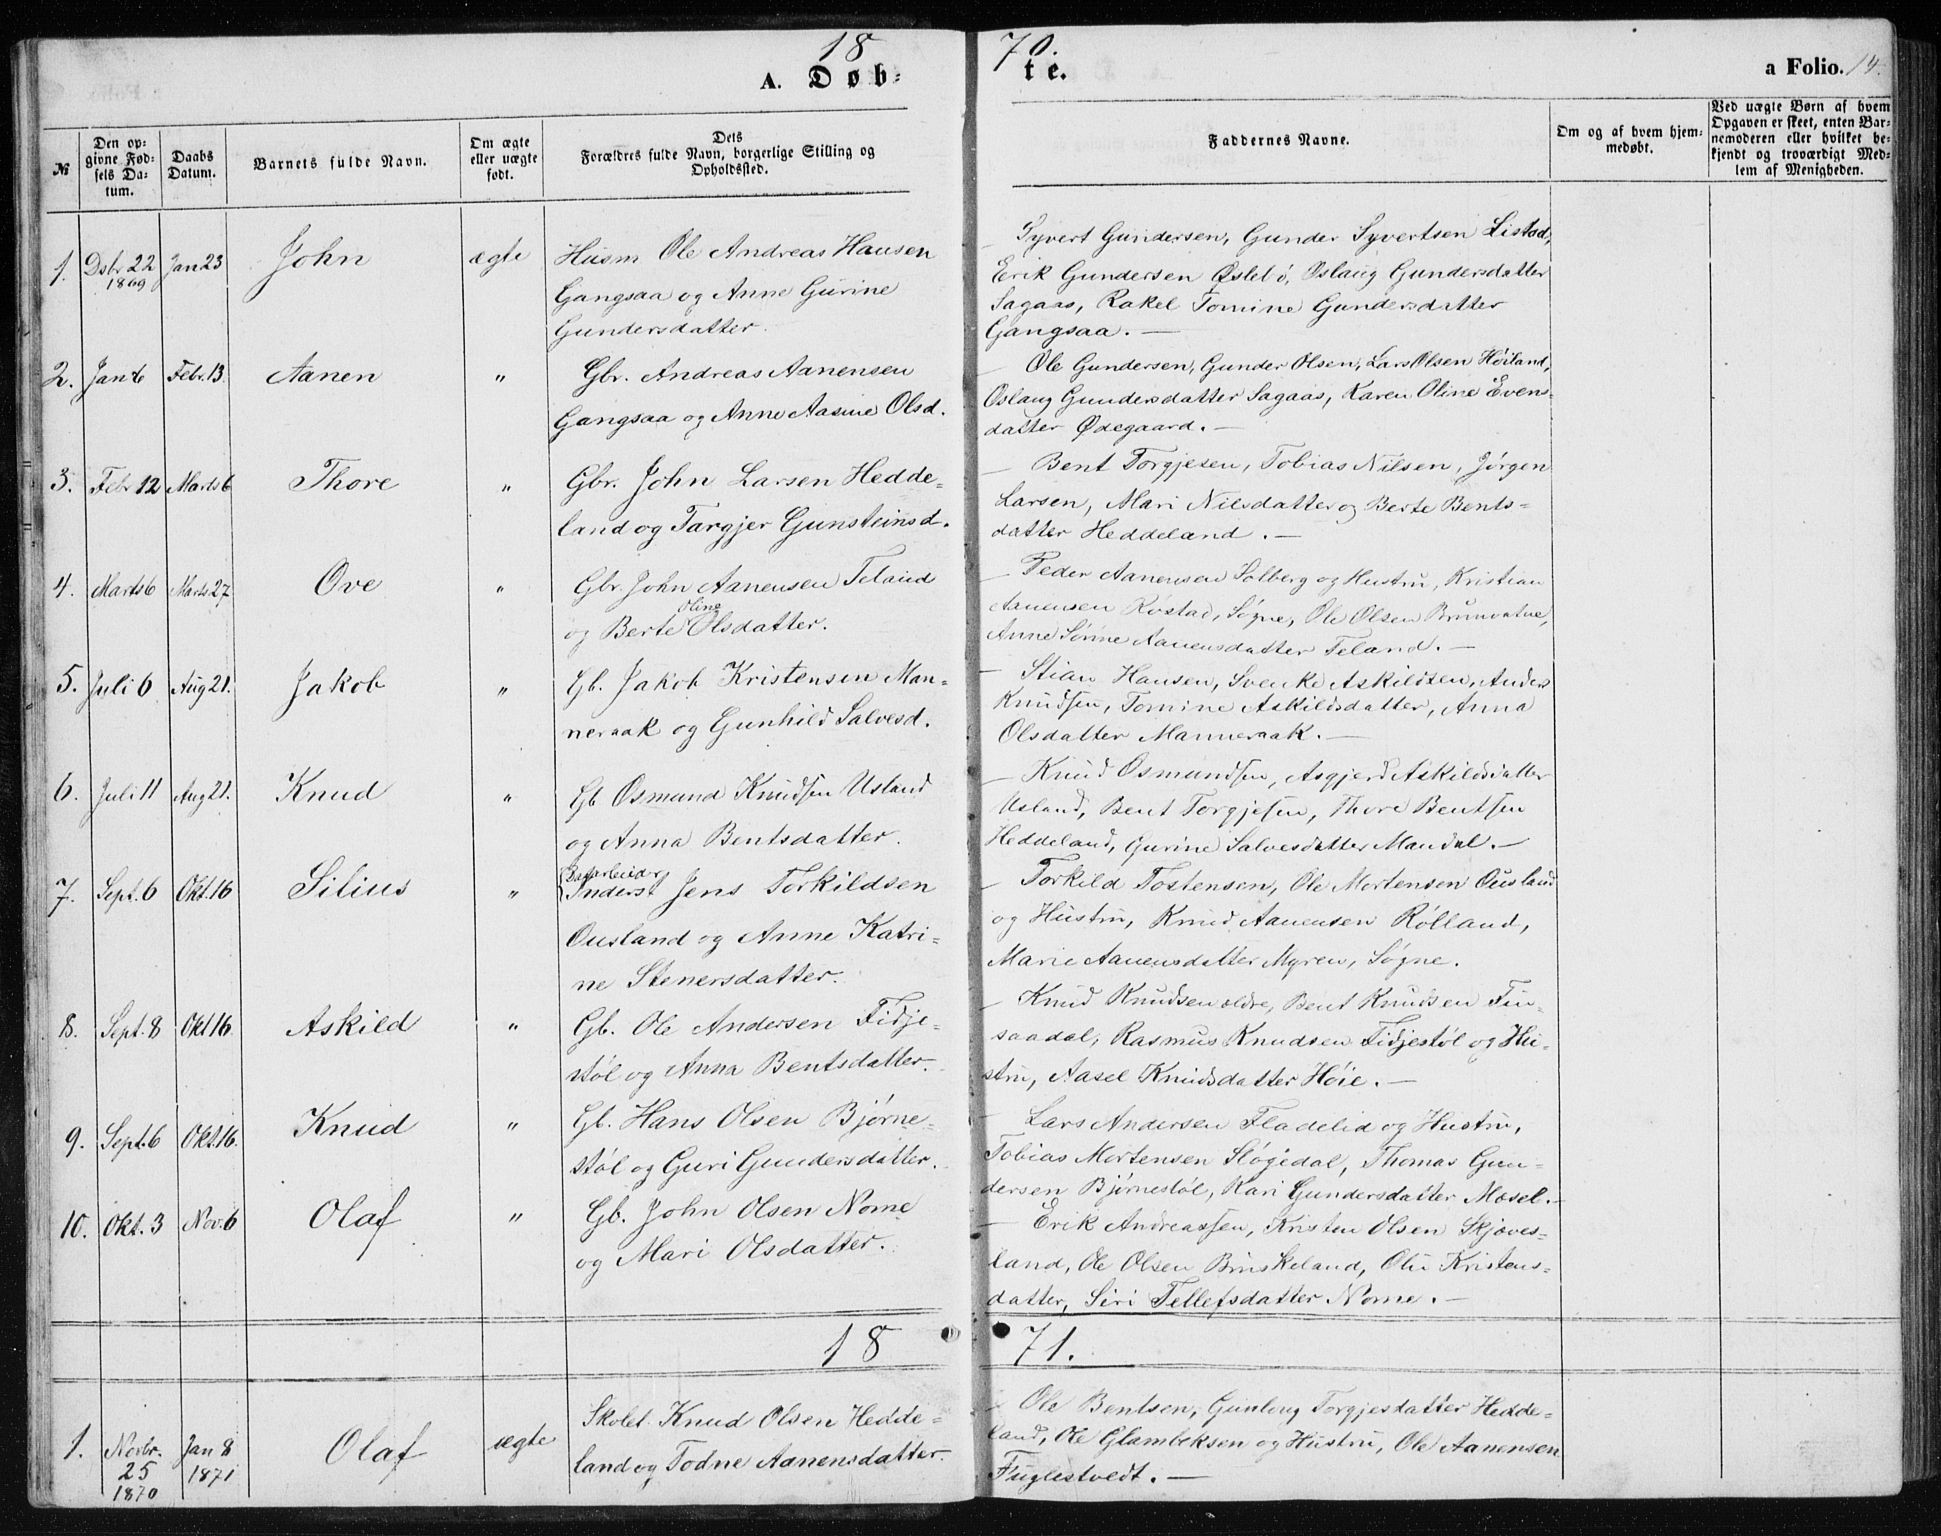 18 70.
A. Døb- te.
a Folio. 14.
№
Den op-
givne Fød-
sels Da-
tum.
Daabs
Datum.
Barnets fulde Navn.
Om ægte
eller uægte
født.
Dets
Forældres fulde Navn, borgerlige Stilling og
Opholdssted.
Faddernes Navne.
Om og af hvem hjem-
medøbt.
Ved uægte Børn af hvem
Opgaven er skeet, enten Bar-
nemoderen eller hvilket be-
kjendt og troværdigt Med-
lem af Menigheden.
1. Dsbr 22 1869 Jan 23 John ægte
Husm Ole Andreas Hansen
Gangsaa og Anne Gurine
Gundersdatter.
Syvert Gundersen, Gunder Syvertsen Listad,
Erik Gundersen Øslebø, Oslaug Gundersdatter
Sagaas, Rakel Tomine Gundersdatter
Gangsaa. —
2. Jan 6 Febr. 13. Aanen "
Gbr. Andreas Aanensen
Gangsaa og Anne Aasine Olsd.
— Ole Gundersen, Gunder Olsen, Lars Olsen Høiland,
Oslaug Gundersdatter Sagaas, Karen Oline Evens-
datter Ødegaard. —
3. Febr 12 Marts 6 Thore "
Gbr. John Larsen Hedde-
land og Targjer Gunsteinsd.
— Bent Torgjesen, Tobias Nilsen, Jørgen
Larsen, Mari Nilsdatter og Berte Bents-
datter Heddeland. —
4. Marts 6 Marts 27 Ove "
Gbr. John Aanensen Feland
og Berte Oline Olsdatter.
— Peder Aanensen Solberg og Hustru, Kristian
Aanensen Røstad, Søgne, Ole Olsen Brunvatne,
Anne Sørine Aanensdatter Feland. —
5. Juli 6 Aug 21. Jakob "
Gb. Jakob Kristensen Man-
neraak og Gunhild Salvesd.
— Stian Hansen, Svenke Askildsen, Anders
Knudsen, Tomine Askildsdatter, Anna
Olsdatter Manneraak. —
6. Juli 11 Aug 21. Knud "
Gb Osmund Knudsen Usland
og Anna Bentsdatter.
— Knud Osmundsen, Asgjerd Askildsdatter
Usland, Bent Torgjesen, Thore Bentsen
Heddeland, Gurine Salvesdatter Mandal. —
7. Sept. 6 Okt. 16 Silius "
Inderst Jens Torkildsen
Ousland og Anne Katri-
ne Stenersdatter.
— Torkild Tostensen, Ole Mortensen Ousland
og Hustru, Knud Aanensen Rølland,
Marie Aanensdatter Myren, Søgne.
8. Sept. 8 Okt 16. Askild "
Gb. Ole Andersen Fidje-
støl og Anna Bentsdatter.
— Knud Knudsen ældre, Bent Knudsen Fin-
saadal, Rasmus Knudsen Fidjestøl og Hu-
stru, Aasel Knudsdatter Høie. —
9. Sept. 6 Okt. 16. Knud "
Gb. Hans Olsen Bjørne-
støl og Guri Gundersdatter.
— Lars Andersen Fladelid og Hustru,
Tobias Mortensen Støgedal, Thomas Gun-
dersen Bjørnestøl, Kari Gundersdatter Mosel. —
10. Okt. 3 Nov. 6 Olaf "
Gb. John Olsen Nome
og Mari Olsdatter.
— Erik Andreassen, Kristen Olsen Skjæves-
land, Ole Olsen Bruskeland, Kristens-
datter, Siri Tellefsdatter Nome. —
18 71.
1. Novbr. 25 1870 Jan 8 1871 Olaf ægte
Skolel. Knud Olsen Hedde-
land og Todne Aanensdatter.
— Ole Bentsen, Gunloug Torgjesdatter Hedde-
land, Ole Glambeksen og Hustru, Ole Aanensen
Fuglestvedt. —